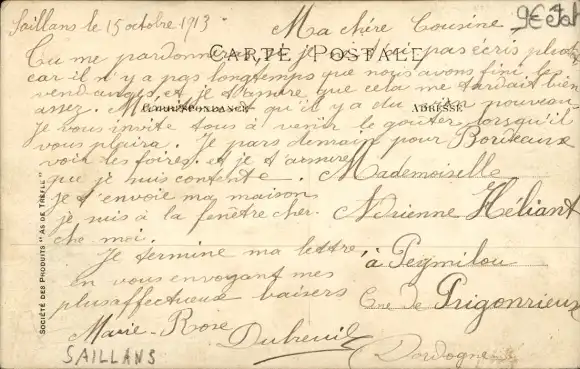 Saillans le 15 octobre 1913
9€
Ma chère Cousine
CARTE POSTALE
Tu me pardonneras si je ne t'ai pas écris plutôt
car il n'y a pas longtemps que nous avons fini les
vendanges, et je t'assure que cela me tardait bien
assez. Maintenant qu'il y a du vin nouveau
CORRESPONDANCE
ADRESSE
je vous invite tous à venir le goûter lorsqu'il
vous plaira. Je pars demain pour Bordeaux
voir les foires, et je t'assure
que je suis contente.
je t'envoie ma maison
je suis à la fenêtre cher
che moi.
Je termine ma lettre
en vous envoyant mes
plus affectueux baisers
Marie-Rose Dubreuil
SAILLANS
Mademoiselle
Adrienne Héliant
à Peymilou
Cne de Prigonrieux
Dordogne
SOCIÉTÉ DES PRODUITS "AS DE TRÈFLE"